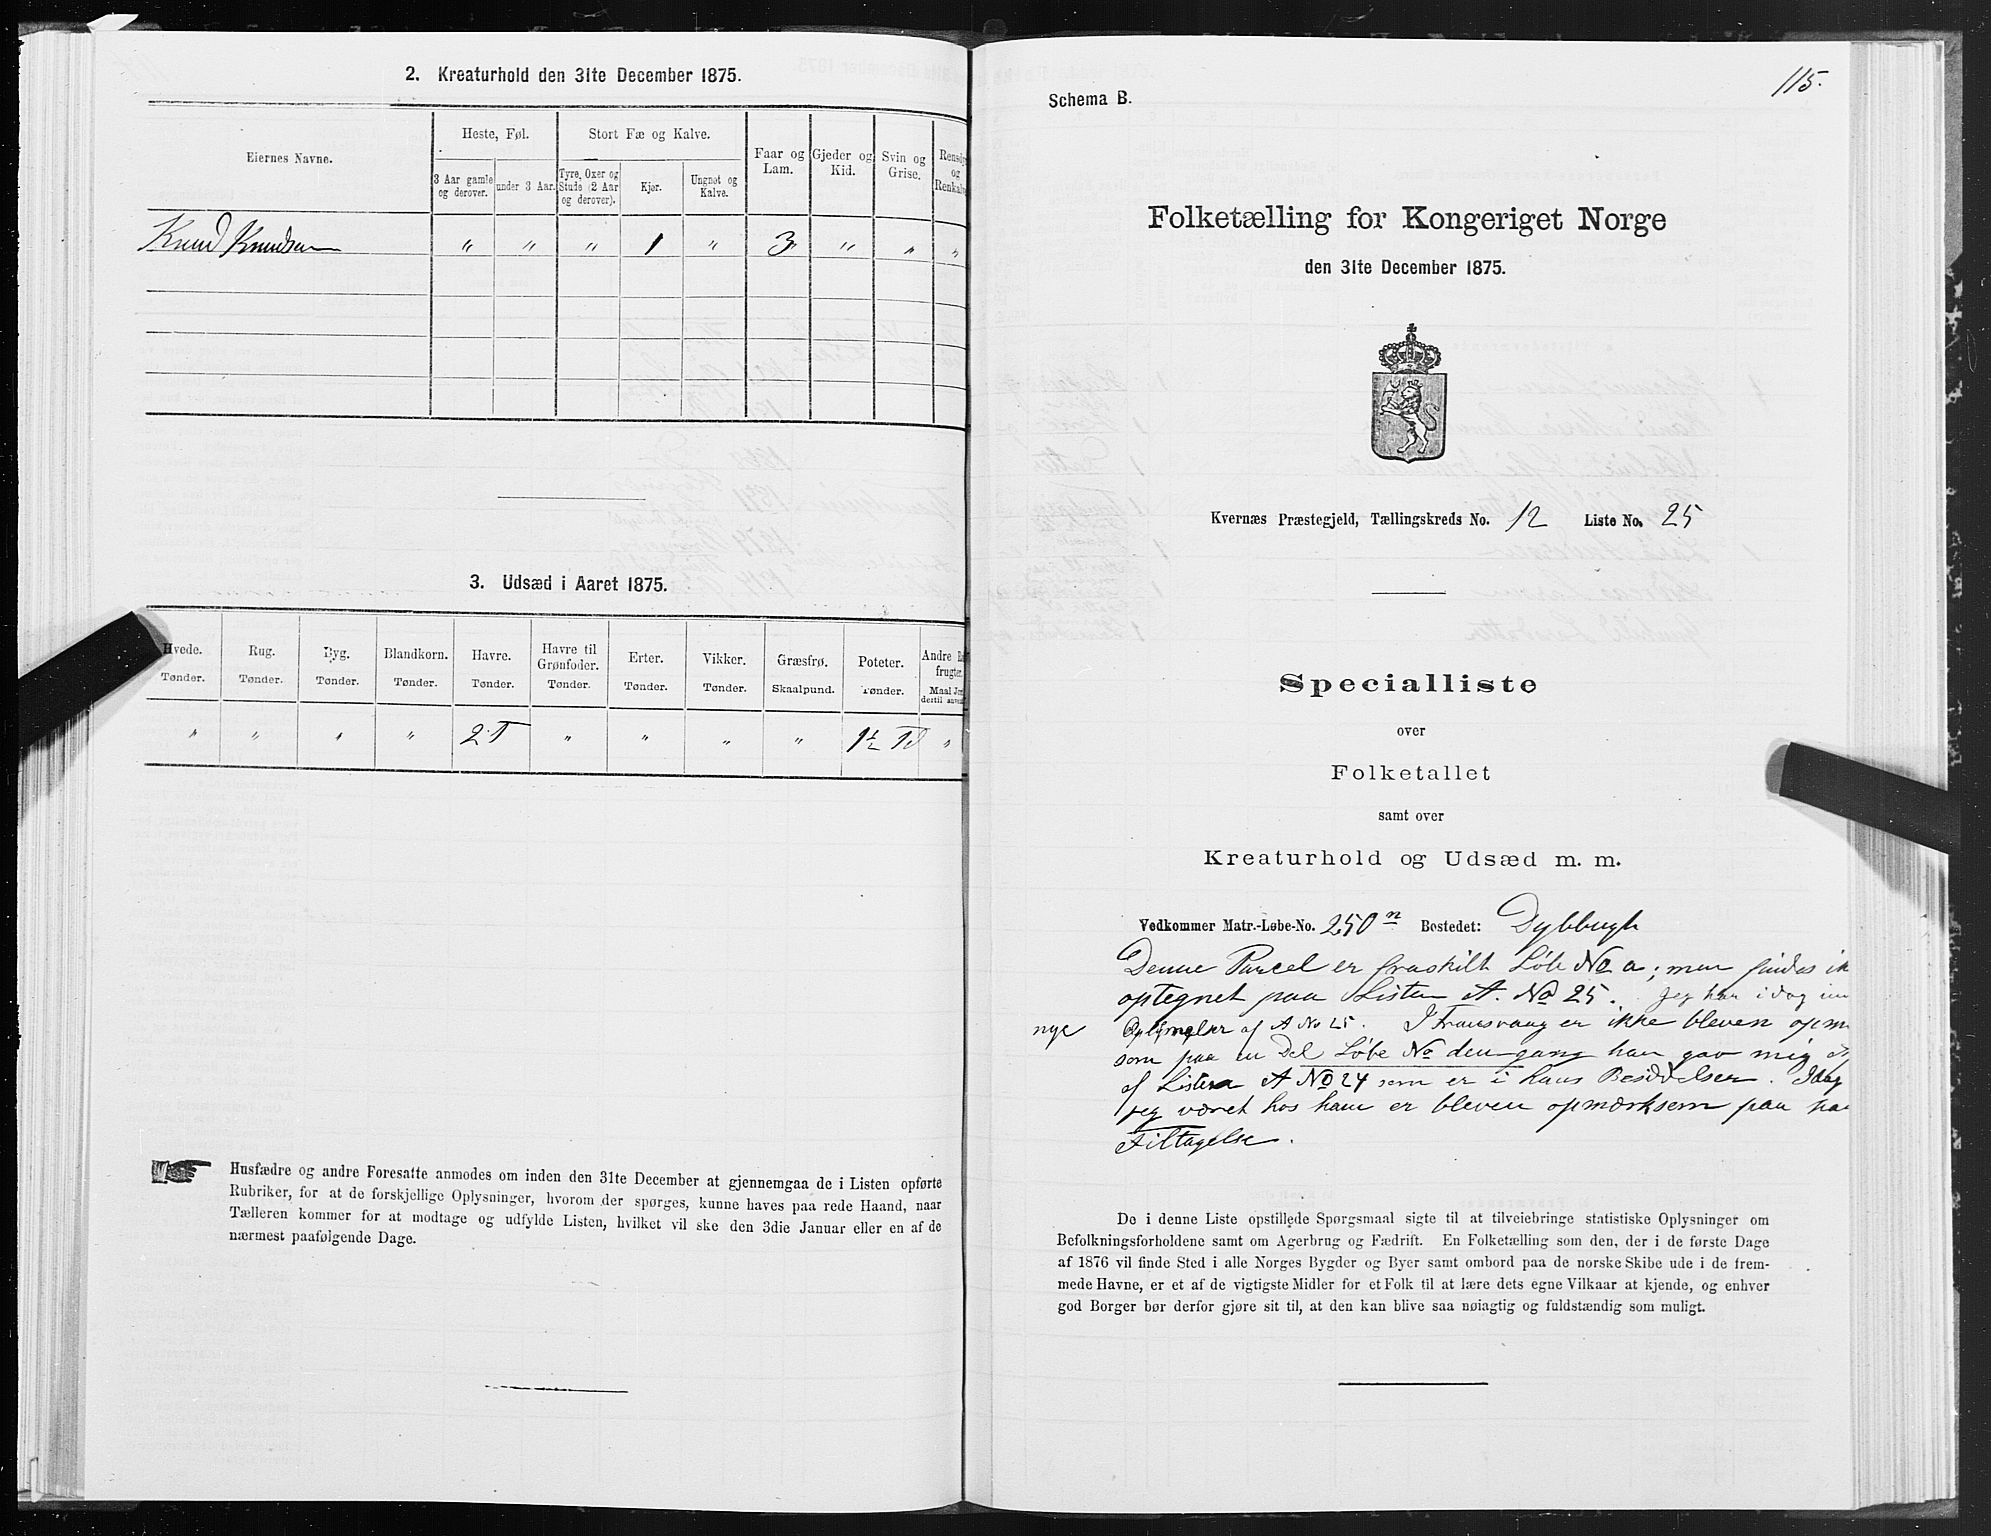 2. Kreaturhold den 31te December 1875.
Eiernes Navne.
Heste, Føl.
Stort Fæ og Kalve.
Faar og Lam.
Gjeder og Kid.
Svin og Grise.
Rensdy
og
Renkalve
3 Aar gamle og derover.
under 3 Aar.
Tyre, Oxer og Stude (2 Aar og derover).
Kjør.
Ungnøt og Kalve.
Knud Knudsen " " " 1 " 3 " " "
3. Udsæd i Aaret 1875.
Hvede. Rug. Byg. Blandkorn. Havre. Havre til Grønfoder. Erter. Vikker. Græsfrø. Poteter. Andre
frugter
Tønder. Tønder. Tønder. Tønder. Tønder. Tønder. Tønder. Tønder. Skaalpund. Tønder. Maal
dertil
" " " " 2 T " " " " 1½ Td "
Husfædre og andre Foresatte anmodes om inden den 31te December at gjennemgaa de i Listen opførte
Rubriker, for at de forskjellige Oplysninger, hvorom der spørges, kunne haves paa rede Haand, naar
Tælleren kommer for at modtage og udfylde Listen, hvilket vil ske den 3die Januar eller en af de
nærmest paafølgende Dage.
115.
Schema B.
Folketælling for Kongeriget Norge
den 31te December 1875.
Kvernæs Præstegjeld, Tællingskreds No. 12 Liste No. 25
Specialliste
over
Folketallet
samt over
Kreaturhold og Udsæd m. m.
Vedkommer Matr.-Løbe-No. 250 n Bostedet: Dybbugt
Denne Parcel er fraskilt Løb No a; men findes ik
optegnet paa Listen A. No 25. Jeg har idag
nye
af A No 25. I Fransvaag er ikke bleven opm
som paa en Del Løbe No dengang han gav mig
af Listen A No 24 som er i hans Besiddelser. Idag
jeg været hos ham er bleven opmærksom paa
Tiltagelse.
De i denne Liste opstillede Spørgsmaal sigte til at tilveiebringe statistiske Oplysninger om
Befolkningsforholdene samt om Agerbrug og Fædrift. En Folketælling som den, der i de første Dage
af 1876 vil finde Sted i alle Norges Bygder og Byer samt ombord paa de norske Skibe ude i de frem-
mede Havne, er et af de vigtigste Midler for et Folk til at lære dets egne Vilkaar at kjende, og enhver
god Borger bør derfor gjøre sit til, at den kan blive saa nøiagtig og fuldstændig som muligt.